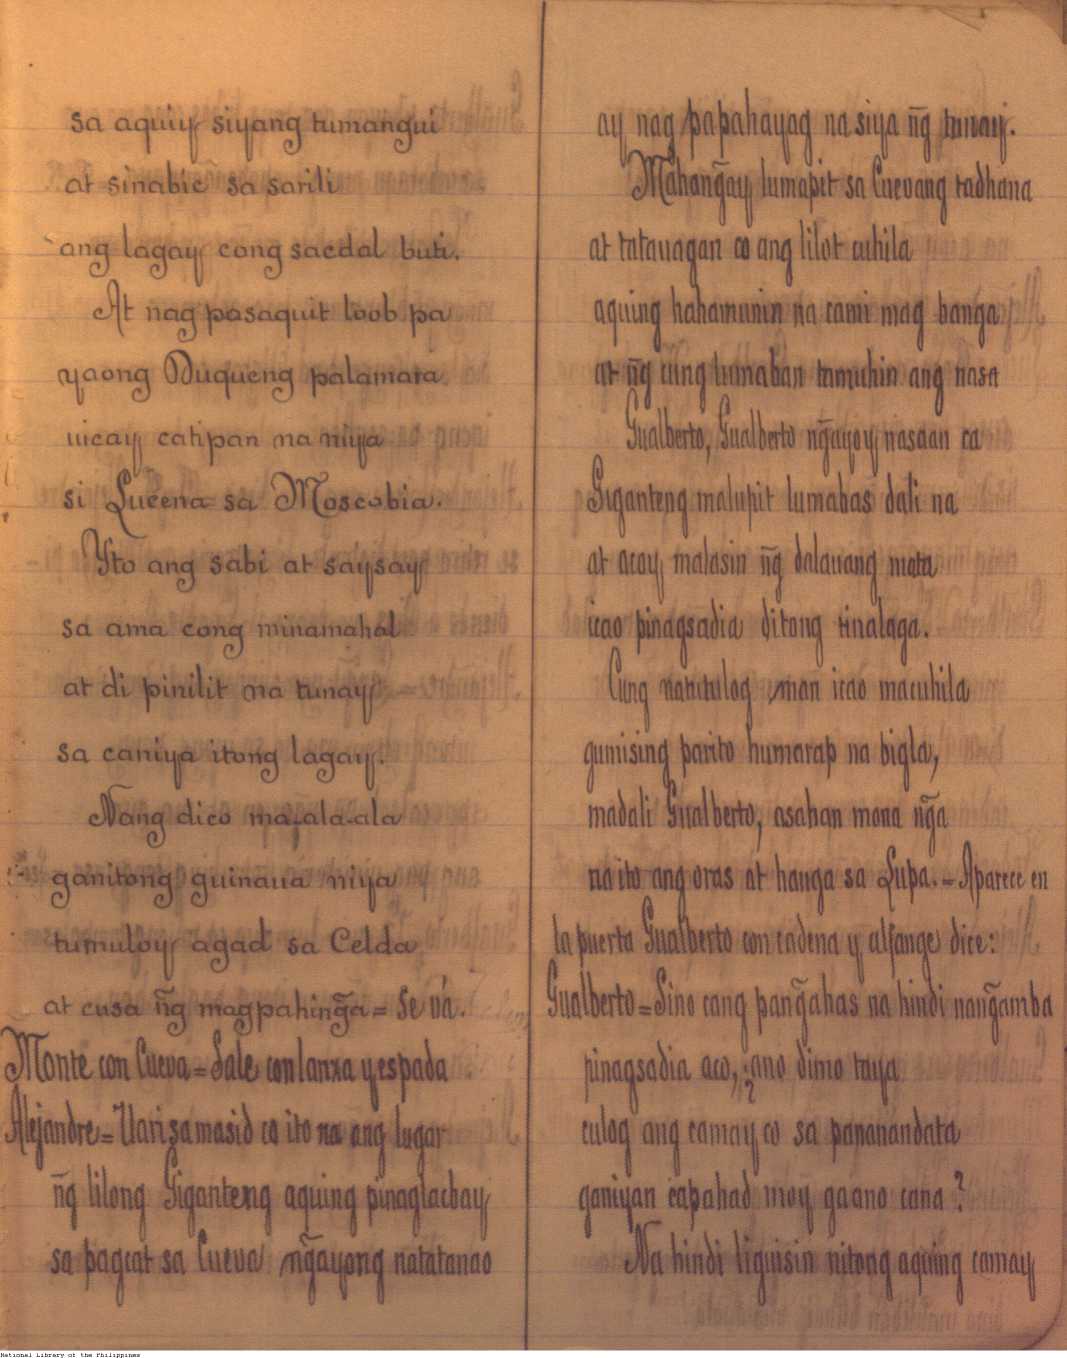 sa aquiy siyang tumangui
at sinabie sa sarili
ang lagay cong sacdal buti.
At nag pasaquit loob pa
yaong Duqueng palamara
uicay catipan na niya
si Lucena sa Moscobia.
Yto ang sabi at saysay
sa ama cong minamahal
at di pinilit na tunay
sa caniya itong lagay.
Nang dico maala-ala
ganitong guinaua niya
tumuloy agad sa Celda
at cusa ñg magpahing̃a = Se vá.
Monte con Cueva = Sale con lanza y espada
Alejandre = Uari sa masid co ito na ang lugar
ñg lilong Giganteng aquing pinaglacbay
sa pagcat sa Cueva ng̃ayong natatanao
ay nag papahayag na siya ñg tunay.
Mahang̃ay lumapit sa Cuevang tadhana
at tatauagan co ang lilot cuhila
aquing hahamunin na cami mag banga
at ñg cung lumaban tamuhin ang nasa
Gualberto, Gualberto ng̃ayoy nasaan ca
Giganteng malupit lumabas dali na
at acoy malasin ñg dalauang mata
icao pinagsadia ditong tinalaga.
Cung natutulog man icao macuhila
gumising parito humarap na bigla,
madali Gualberto, asahan mona ñg̃a
na ito ang oras at hanga sa Lupa. = Aparece en
la puerta Gualberto con cadena y alfange dice:
Gualberto = Sino cang pang̃ahas na hindi nang̃amba
pinagsadia aco, ¿ano dimo taya
culog ang camay co sa pananandata
ganiyan capahad moy gaano cana?
Na hindi liguisin nitong aquing camay